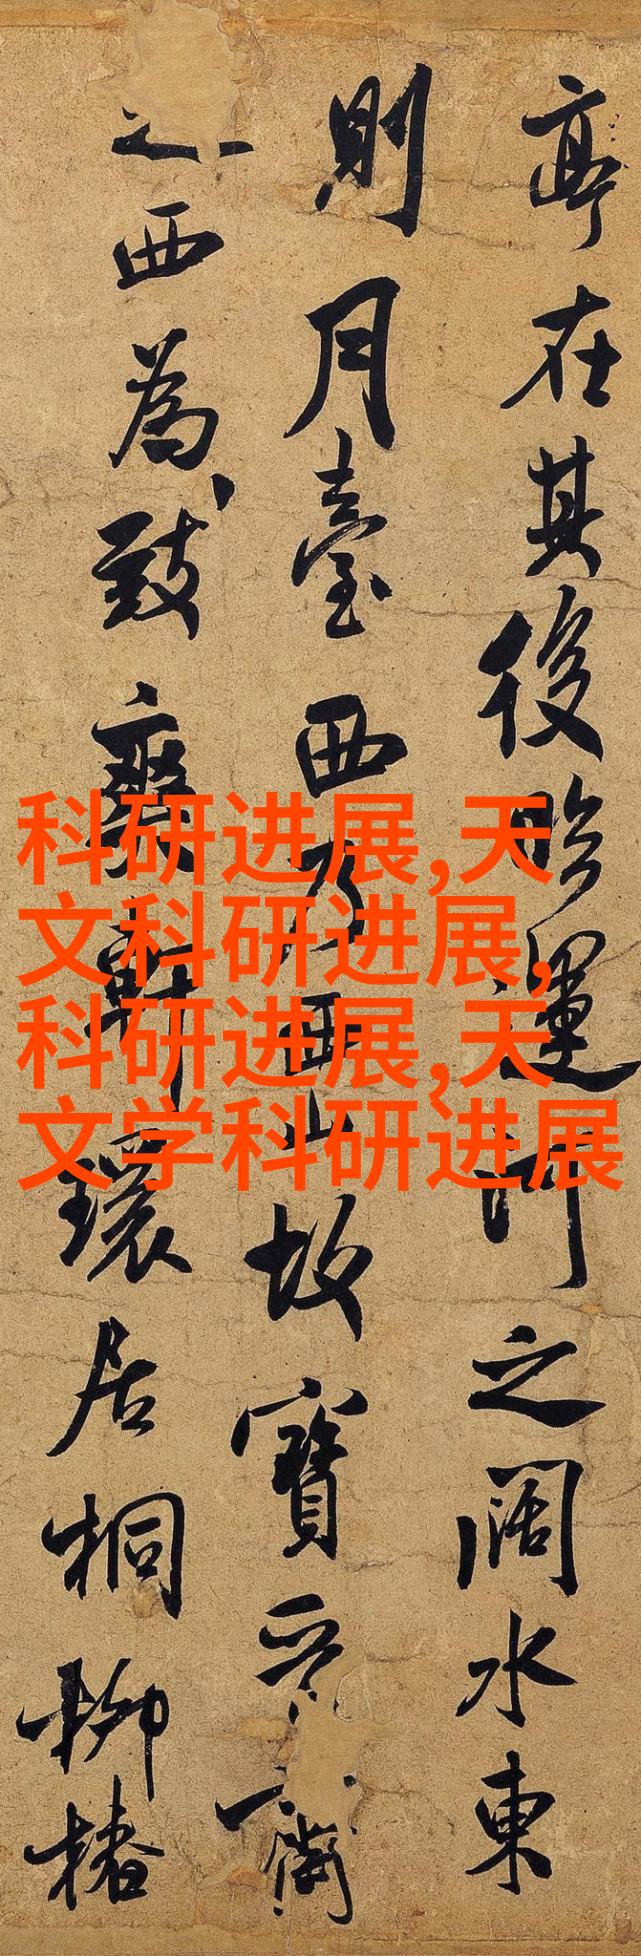 亭在其後臨運河之闊水東
則月臺西乃西山故寶晉齋
之西為致爽軒環居桐柳椿
科研进展,天
文科研进展,
科研进展,天
文学科研进展